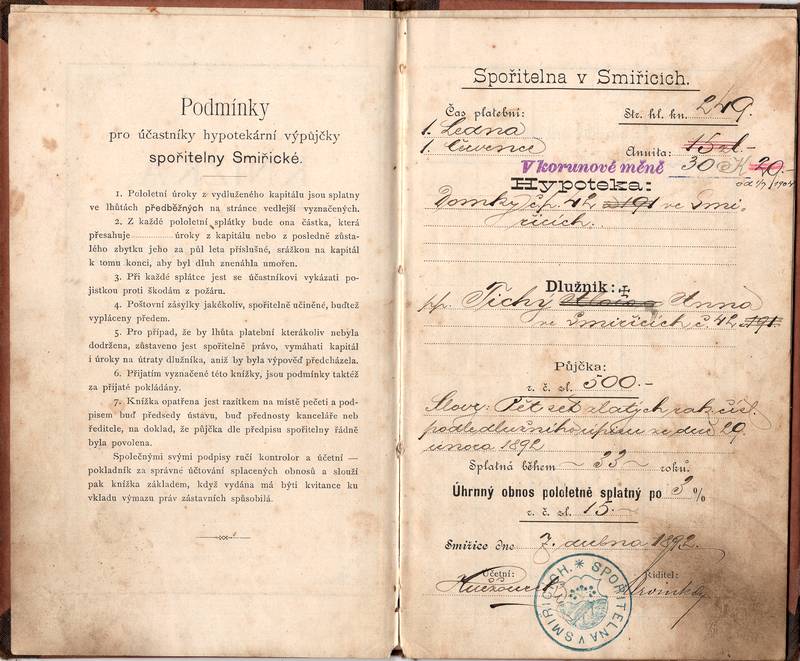 Podmínky
pro účastníky hypotekární výpůjčky
spořitelny Smiřické.
1. Pololetní úroky z vydluženého kapitálu jsou splatny
ve lhůtách předběžných na stránce vedlejší vyznačených.
2. Z každé pololetní splátky bude ona částka, která
přesahuje úroky z kapitálu nebo z posledně zůsta-
lého zbytku jeho za půl leta příslušné, srážkou na kapitál
k tomu konci, aby byl dluh znenáhla umořen.
3. Při každé splátce jest se účastníkovi vykázati po-
jistkou proti škodám z požáru.
4. Poštovní zásylky jakékoliv, spořitelně učiněné, buďtež
vypláceny předem.
5. Pro případ, že by lhůta platební kterákoliv nebyla
dodržena, zůstaveno jest spořitelně právo, vymáhati kapitál
i úroky na útraty dlužníka, aniž by byla výpověď předcházela.
6. Přijatím vyznačené této knížky, jsou podmínky taktéž
za přijaté pokládány.
7. Knížka opatřena jest razítkem na místě pečeti a pod-
pisem buď předsedy ústavu, buď přednosty kanceláře neb
ředitele, na doklad, že půjčka dle předpisu spořitelny řádně
byla povolena.
Společnými svými podpisy ručí kontrolor a účetní —
pokladník za správné účtování splacených obnosů a slouží
pak knížka základem, když vydána má býti kvitance ku
vkladu výmazu práv zástavních spůsobilá.
Spořitelna v Smiřicích.
Čas platební: Str. hl. kn. 249.
1. Ledna
1. Července Annuita: 15 zl.-
V korunové měně 30 K 20.-
od 1/7 1904
Hypoteka:
Domky č.p. 42 191 ve Smi-
řicích.
Dlužník:
Tichý Anna
ve Smiřicích č. 42 191.
Půjčka:
r. č. zl. 500.-
Slovy: Pět set zlatých rak. čís.
podle dlužního úpisu ze dne 29.
února 1892
Splatná během 33 roků.
Úhrnný obnos pololetně splatný po 3 %
r. č. zl. 15.-
Smiřice dne 7. dubna 1892.
Účetní: Řiditel:
SPOŘITELNA V SMIŘICÍCH.